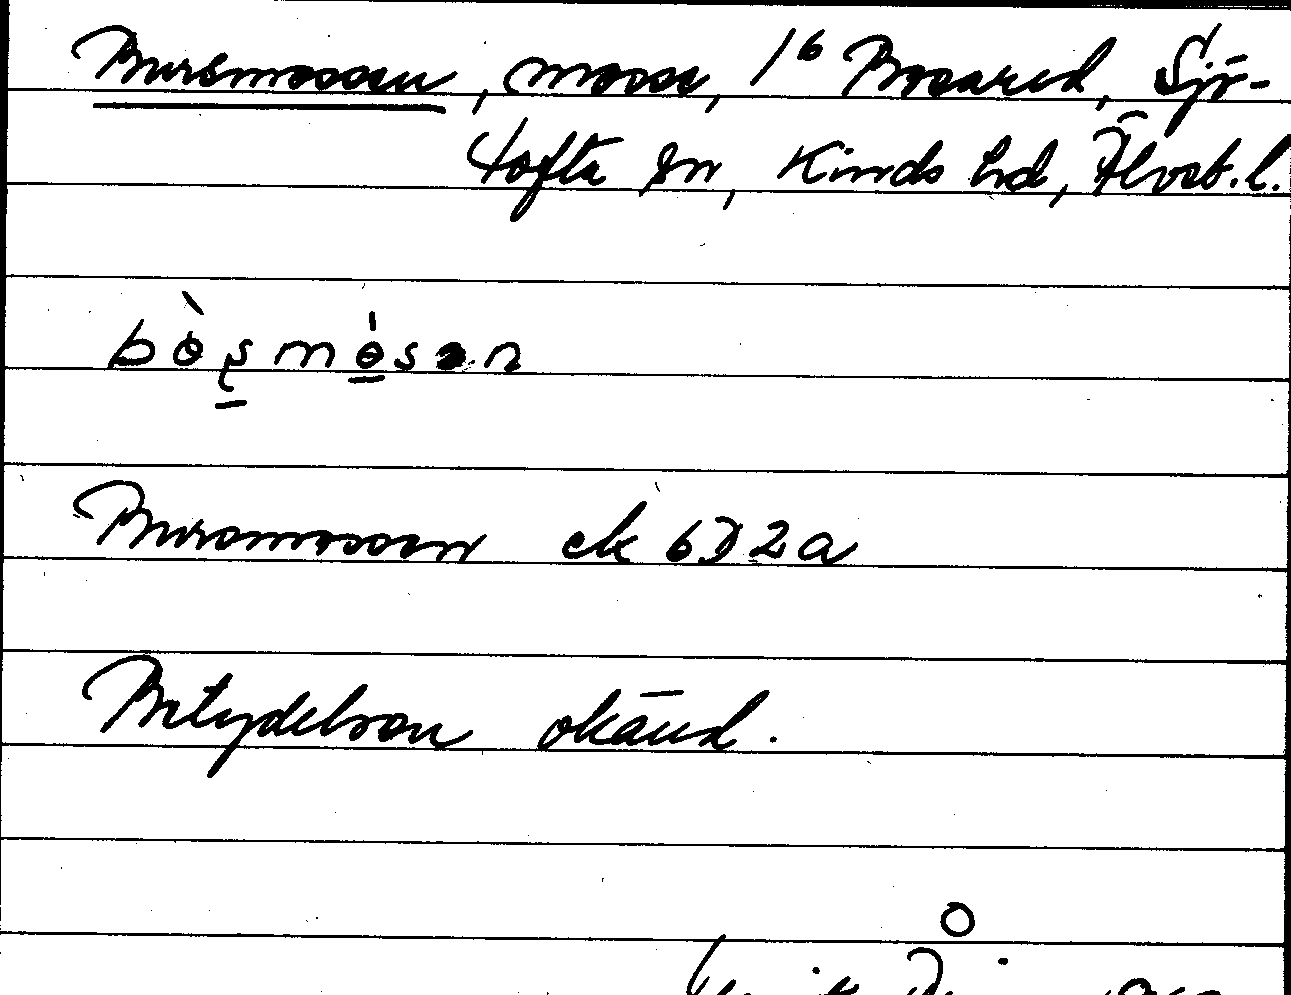 Bursmossen, mosse, 1⁶ Bosared, Sjö-
tofta sn, Kinds hd, Älvsb. l.
Bursmossen ek 6D2a
Betydelsen okänd.